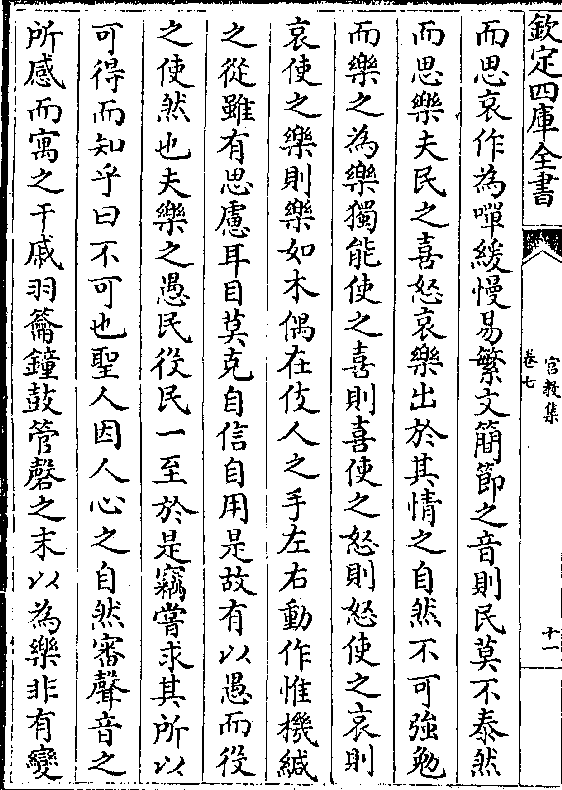 欽定四庫全書
宮教集
卷七
十一
而思哀作為嘽緩慢易繁文簡節之音則民莫不泰然
而思樂夫民之喜怒哀樂出於其情之自然不可強勉
而樂之為樂獨能使之喜則喜使之怒則怒使之哀則
哀使之樂則樂如木偶在伎人之手左右動作惟機緘
之從雖有思慮耳目莫克自信自用是故有以愚而役
之使然也夫樂之愚民役民一至於是竊嘗求其所以
可得而知乎曰不可也聖人因人心之自然審聲音之
所感而寓之干戚羽籥鐘鼓管磬之末以為樂非有變